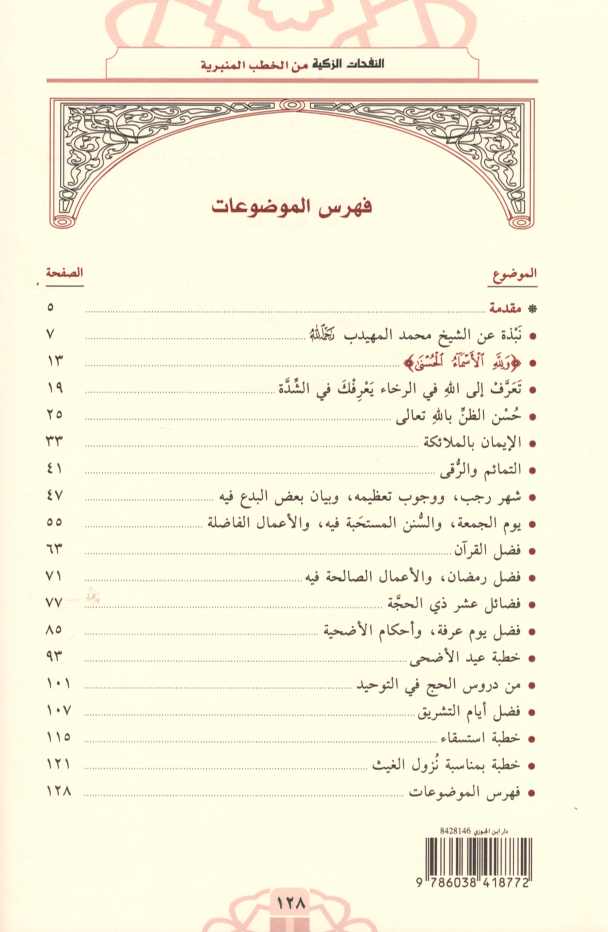 النفحات الزكية من الخطب المنبرية
فهرس الموضوعات
الموضوع الصفحة
* مقدمة ٥
• نَبْذة عن الشيخ محمد المهيدب رَحِمَهُ اللَّهُ ٧
• ﴿وَلِلَّهِ ٱلْأَسْمَآءُ ٱلْحُسْنَىٰ﴾ ١٣
• تَعَرَّفْ إلى اللهِ في الرخاء يَعْرِفْكَ في الشِّدَّة ١٩
• حُسْن الظنِّ باللهِ تعالى ٢٥
• الإيمان بالملائكة ٣٣
• التمائم والرُّقى ٤١
• شهر رجب، ووجوب تعظيمه، وبيان بعض البدع فيه ٤٧
• يوم الجمعة، والسُّنن المستحَبة فيه، والأعمال الفاضلة ٥٥
• فضل القرآن ٦٣
• فضل رمضان، والأعمال الصالحة فيه ٧١
• فضائل عشر ذي الحجَّة ٧٧
• فضل يوم عرفة، وأحكام الأضحية ٨٥
• خطبة عيد الأضحى ٩٣
• من دروس الحج في التوحيد ١٠١
• فضل أيام التشريق ١٠٧
• خطبة استسقاء ١١٥
• خطبة بمناسبة نُزول الغيث ١٢١
• فهرس الموضوعات ١٢٨
دار ابن الجوزي 8428146
9 786038 418772
١٢٨